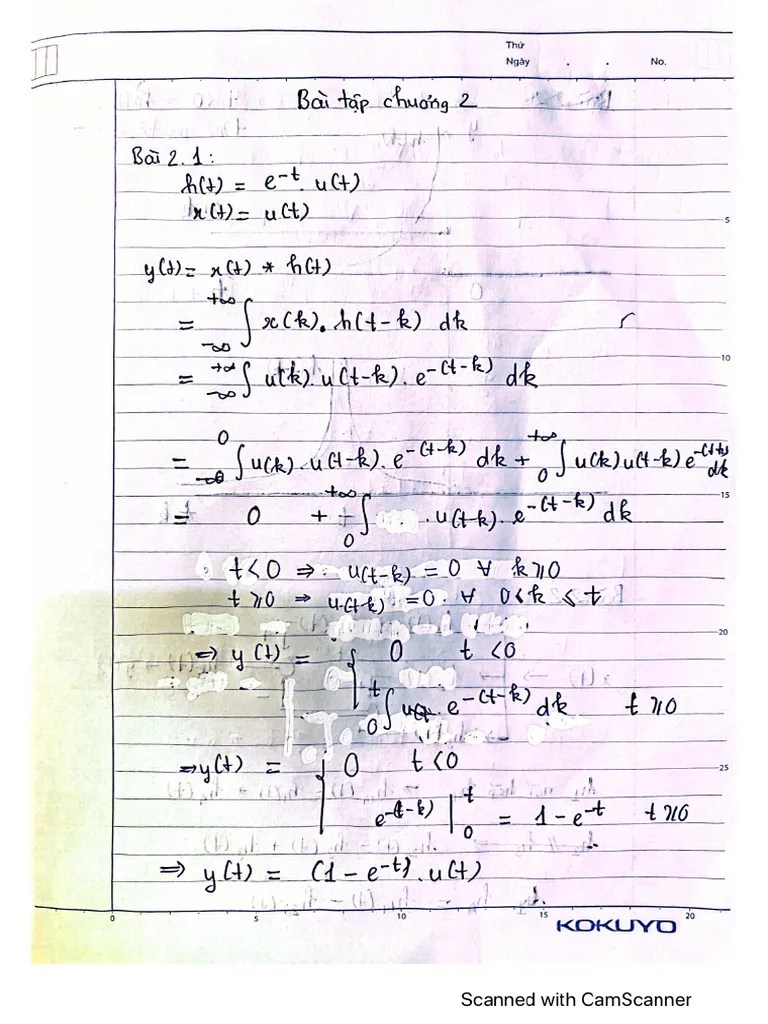 Thứ
Ngày . . No.
Bài tập chương 2
Bài 2.1:
h(t) = e^-t . u(t)
x(t) = u(t)
5
y(t) = x(t) * h(t)
= -∞ ∫ +∞ x(k). h(t-k) dk
10
= -∞ ∫ +∞ u(k). u(t-k). e^-(t-k) dk
= -∞ ∫ 0 u(k). u(t-k). e^-(t-k) dk + 0 ∫ +∞ u(k) u(t-k) dk
15
= 0 + 0 ∫ +∞ . u(t-k). e^-(t-k) dk
t < 0 ⇒ u(t-k) = 0 ∀ k ⩾ 0
t ⩾ 0 ⇒ u(t-k) = 0 ∀ 0 < k ⩽ t
20
⇒ y(t) = { 0 t < 0
0 ∫ t e^-(t-k) dk t ⩾ 0
25
⇒ y(t) = { 0 t < 0
e^-(t-k) | 0 t = 1 - e^-t t ⩾ 0
⇒ y(t) = (1 - e^-t). u(t)
0 5 10 15 20
KOKUYO
Scanned with CamScanner